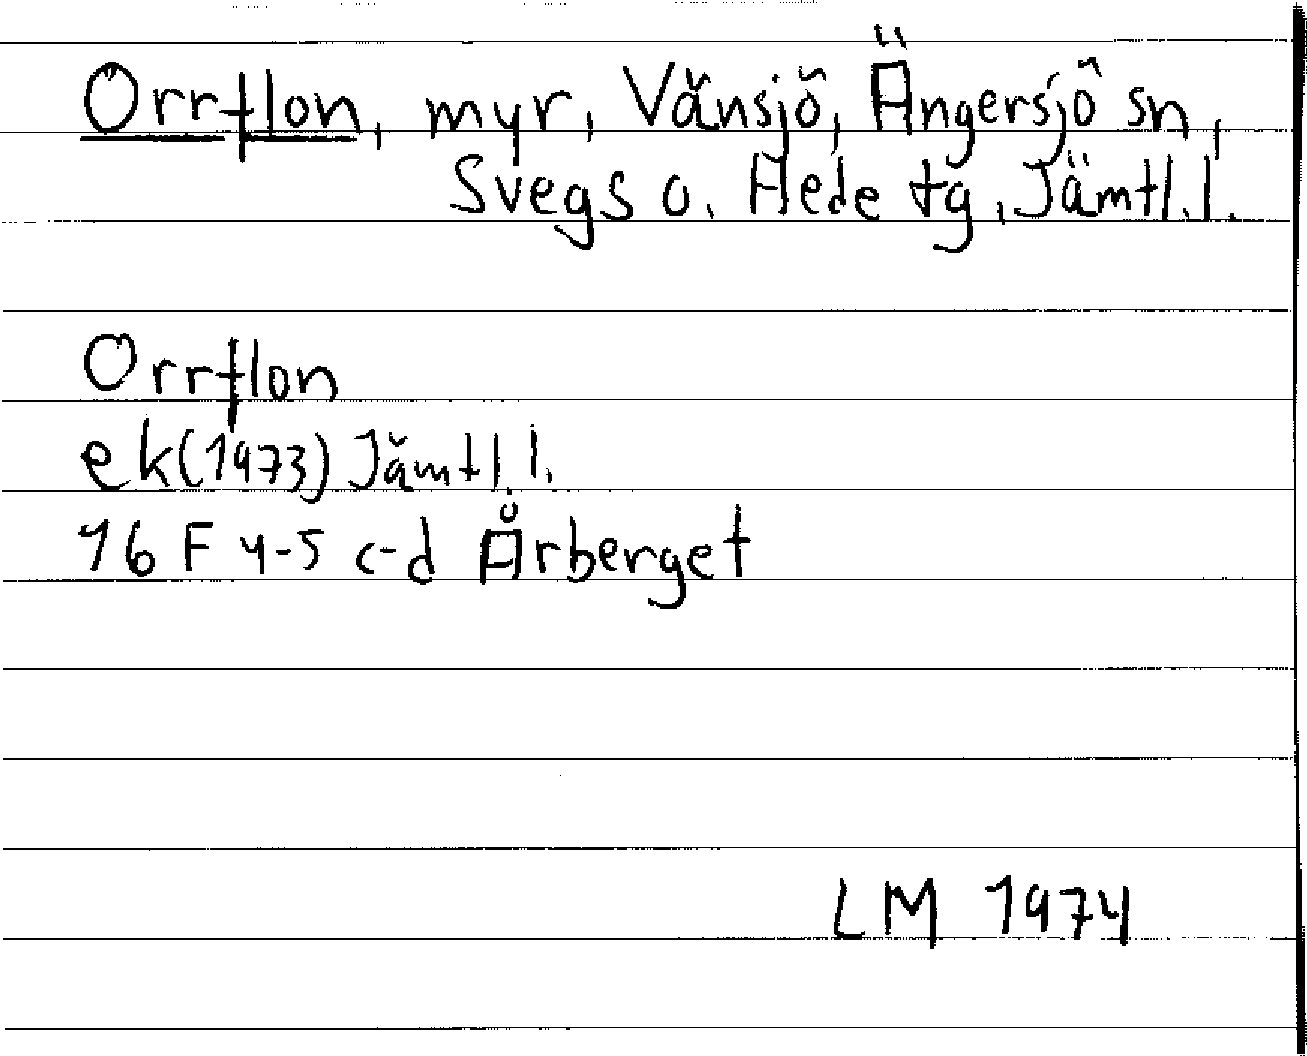 Orrflon, myr, Vänsjö, Ängersjö sn,
Svegs o. Hede tg, Jämtl. l.
Orrflon
ek (1973) Jämtl. l.
16 F 4-5 c-d Årberget
LM 1974